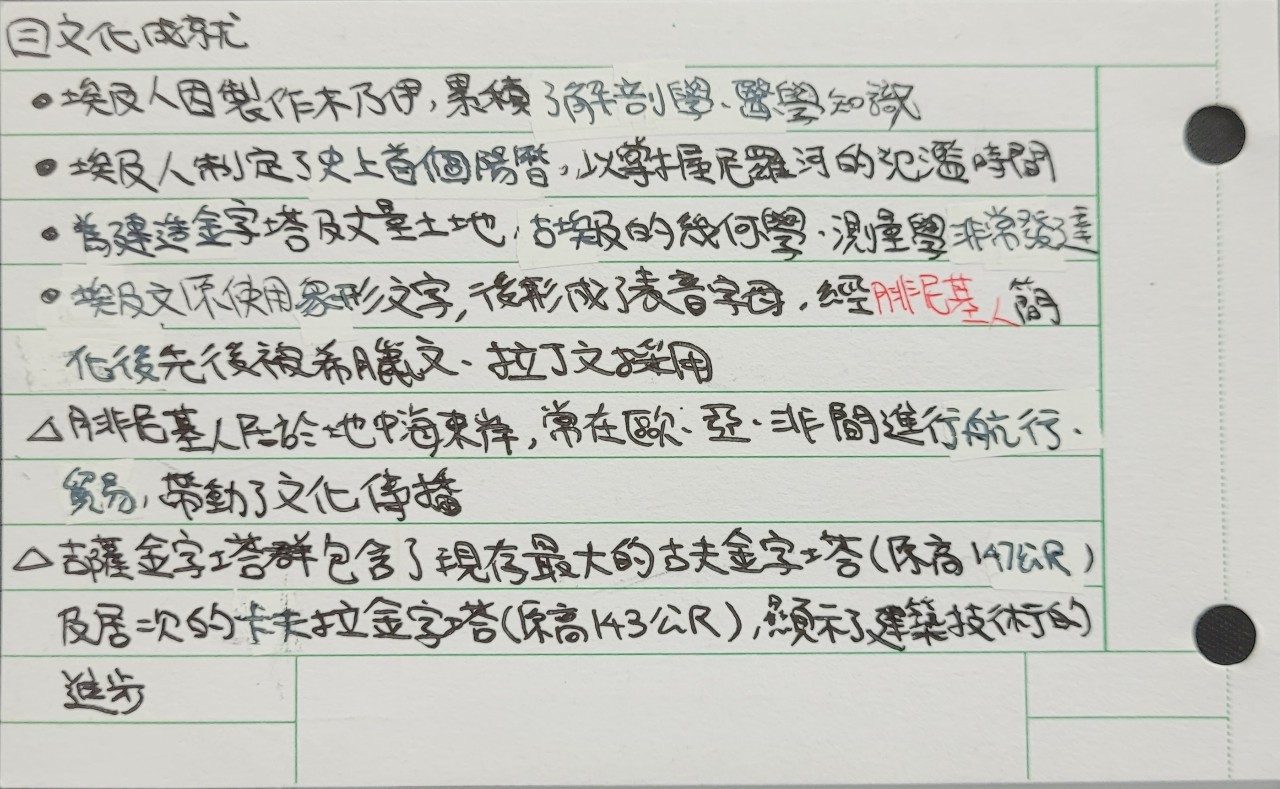 ㊂文化成就
•埃及人因製作木乃伊,累積了解剖學、醫學知識
•埃及人制定了史上首個陽曆,以掌握尼羅河的氾濫時間
•為建造金字塔及丈量土地,古埃及的幾何學、測量學非常發達
•埃及文原使用象形文字,後形成了表音字母,經腓尼基人簡
化後先後被希臘文、拉丁文採用
△腓尼基人居於地中海東岸,常在歐、亞、非間進行航行、
貿易,帶動了文化傳播
△吉薩金字塔群包含了現存最大的古夫金字塔(原高147公尺)
及居次的卡夫拉金字塔(原高143公尺),顯示了建築技術的
進步